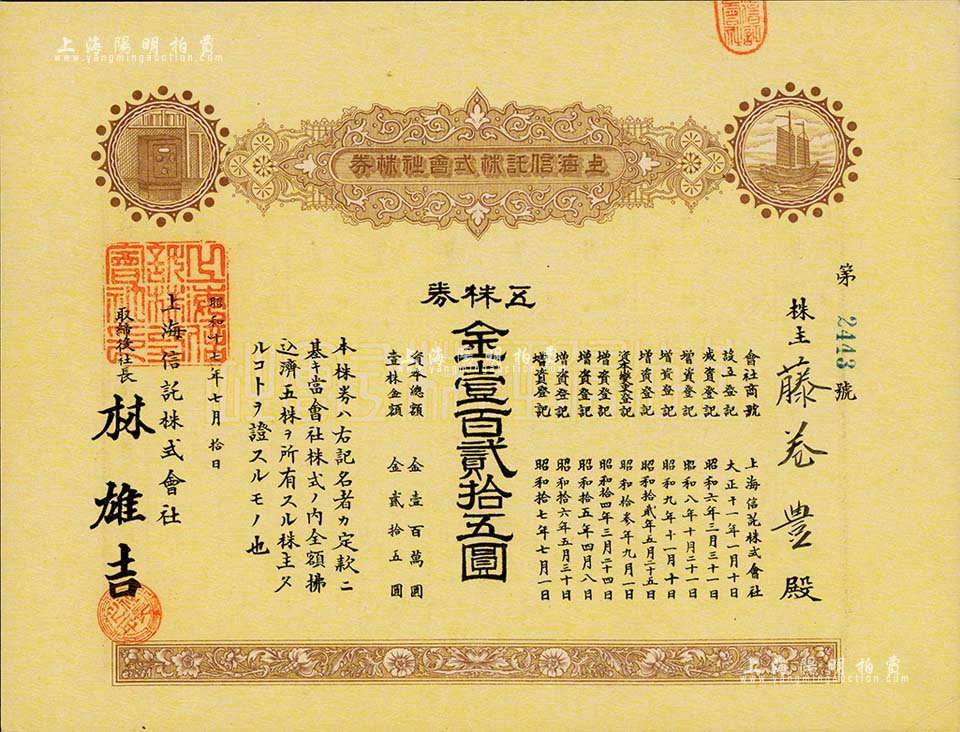 上海陽明拍賣
www.yangmingauction.com
上海信託株式會社株券
第2443號
株主 藤巻豊殿
會社商號 上海信託株式會社
設立登記 大正十一年一月十日
減資登記 昭和六年三月三十一日
增資登記 昭和八年十月二十一日
增資登記 昭和九年十一月十日
增資登記 昭和拾貳年五月二十五日
資本變更登記 昭和拾參年九月一日
增資登記 昭和拾四年三月二十四日
增資登記 昭和拾五年四月八日
增資登記 昭和拾六年五月三十日
增資登記 昭和拾七年七月一日
五株券
金壹百貳拾五圓
資本總額 金壹百萬圓
壹株金額 金貳拾五圓
本株券ハ右記名者カ定款ニ
基キ當會社株式ノ內全額拂
込濟五株ヲ所有スル株主タ
ルコトヲ證スルモノ也
昭和十七年七月拾日
上海信託株式會社
取締役社長 林雄吉
上海陽明拍賣
www.yangmingauction.com
上海陽明拍賣
www.yangmingauction.com